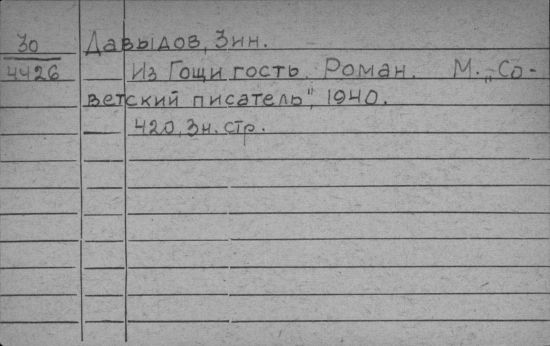 30
4426
Давыдов, Зин.
Из Гощи гость. Роман. М. „Со-
ветский писатель", 1940.
420, 3н. стр.